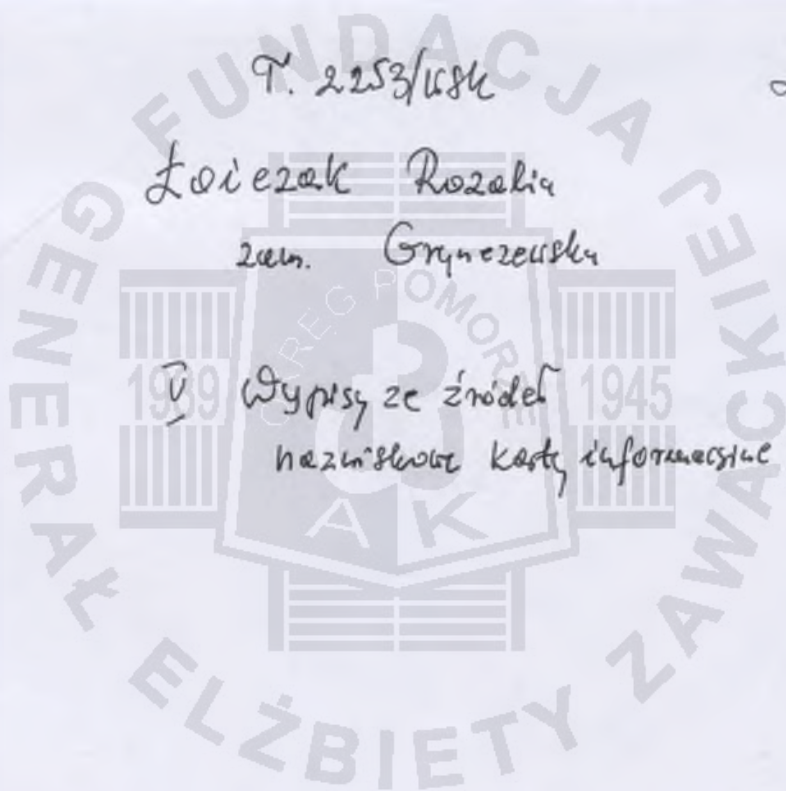 T. 2253/WSK
Łoiczak Rozalia
zam. Grynczewska
V Wypisy ze źródeł
nazwiskowe karty informacyjne
FUNDACJA JEJ
GENERAŁ ELŻBIETY ZAWACKIEJ
OKRĘG POMORZE
1939 1945
AK